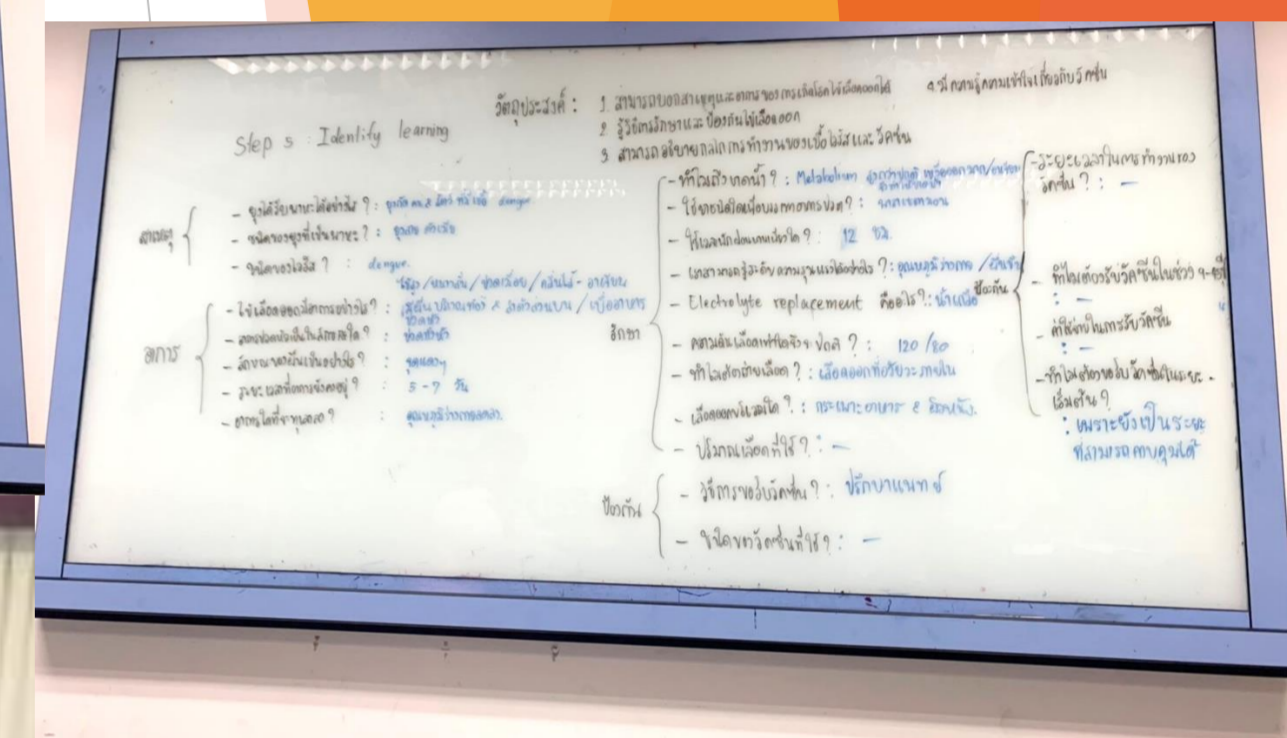 Step 5 : Identify learning
วัตถุประสงค์ :
1. สามารถบอกสาเหตุและอาการของการเกิดโรคไข้เลือดออกได้
2. รู้วิธีการรักษาและป้องกันไข้เลือดออก
3. สามารถอธิบายกลไกการทำงานของเชื้อไวรัสและวัคซีน
4. มีความรู้ความเข้าใจเกี่ยวกับวัคซีน
สาเหตุ
- ยุงได้รับพาหะได้อย่างไร ? : ยุงกัดคน & สัตว์ ที่มีเชื้อ dengue
- ชนิดของยุงที่เป็นพาหะ ? : ยุงลาย ตัวเมีย
- ชนิดของไวรัส ? : dengue.
อาการ
- ไข้เลือดออกมีอาการอย่างไร ? :
ไข้สูง / หนาวสั่น / ปวดเมื่อย / คลื่นไส้ - อาเจียน
มีผื่นบริเวณท้อง & ลำตัวส่วนบน / เบื่ออาหาร
ปวดหัว
- อาการปวดหัวเป็นในลักษณะใด ? : ปวดทั้งหัว
- ลักษณะของผื่นเป็นอย่างไร ? : จุดแดงๆ
- ระยะเวลาที่อาการยังคงอยู่ ? : 5 - 7 วัน
- อาการใดที่จะทุเลาลง ? : อุณหภูมิร่างกายลดลง.
รักษา
- ทำไมถึงขาดน้ำ ? : Metabolism
- ใช้ยาชนิดใดเพื่อบรรเทาอาการปวด ? : พาราเซตามอน
- ใช้เวลาพักผ่อนนานเพียงใด ? : 12 ชม.
- เราสามารถรู้ระดับความรุนแรงได้อย่างไร ? : อุณหภูมิร่างกาย /
- Electrolyte replacement คืออะไร ? : น้ำเกลือ
- ความดันเลือดเท่าใดจึงจะปกติ ? : 120 / 80
- ทำไมต้องถ่ายเลือด ? : เลือดออกที่อวัยวะภายใน
- เลือดออกบริเวณใด ? : กระเพาะอาหาร & ผิวหนัง.
- ปริมาณเลือดที่ใช้ ? : -
ป้องกัน
- วิธีการขอรับวัคซีน ? : ปรึกษาแพทย์
- ชนิดของวัคซีนที่ใช้ ? : -
ป้องกัน
- ระยะเวลาในการทำงานของ
วัคซีน ? : -
- ทำไมต้องรับวัคซีนในช่วง 9-45 ปี
: -
- ค่าใช้จ่ายในการรับวัคซีน
: -
- ทำไมต้องขอรับวัคซีนในระยะ
เริ่มต้น ?
: เพราะยังเป็นระยะ
ที่สามารถควบคุมได้